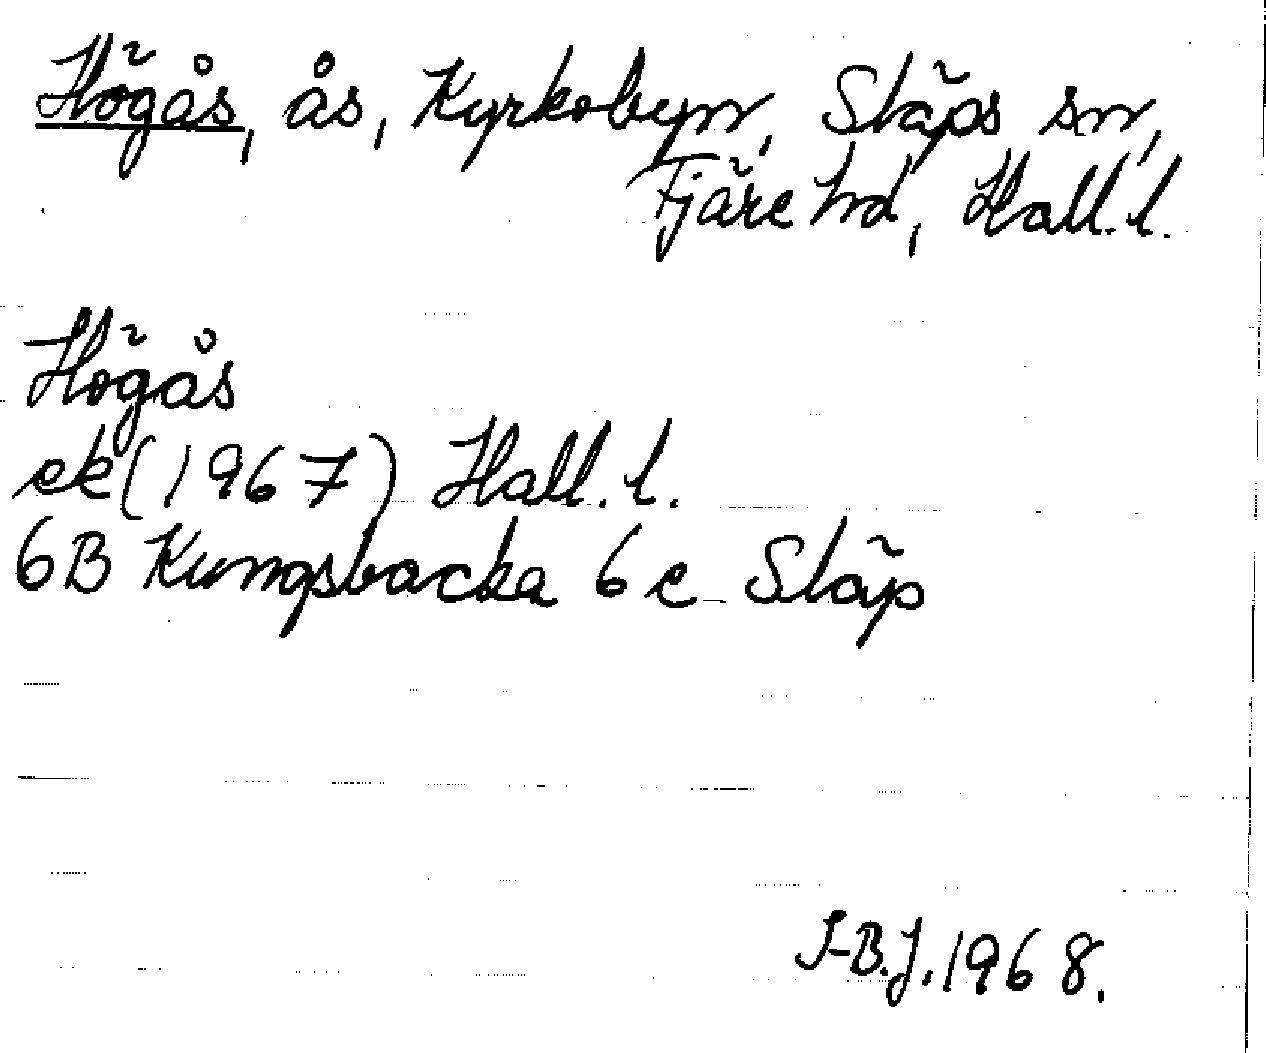 Högås, ås, Kyrkobyn, Släps sn,
Fjäre hd, Hall. l.
Högås
ek (1967) Hall. l.
6B Kungsbacka 6 e Släp
I-B.J. 1968.